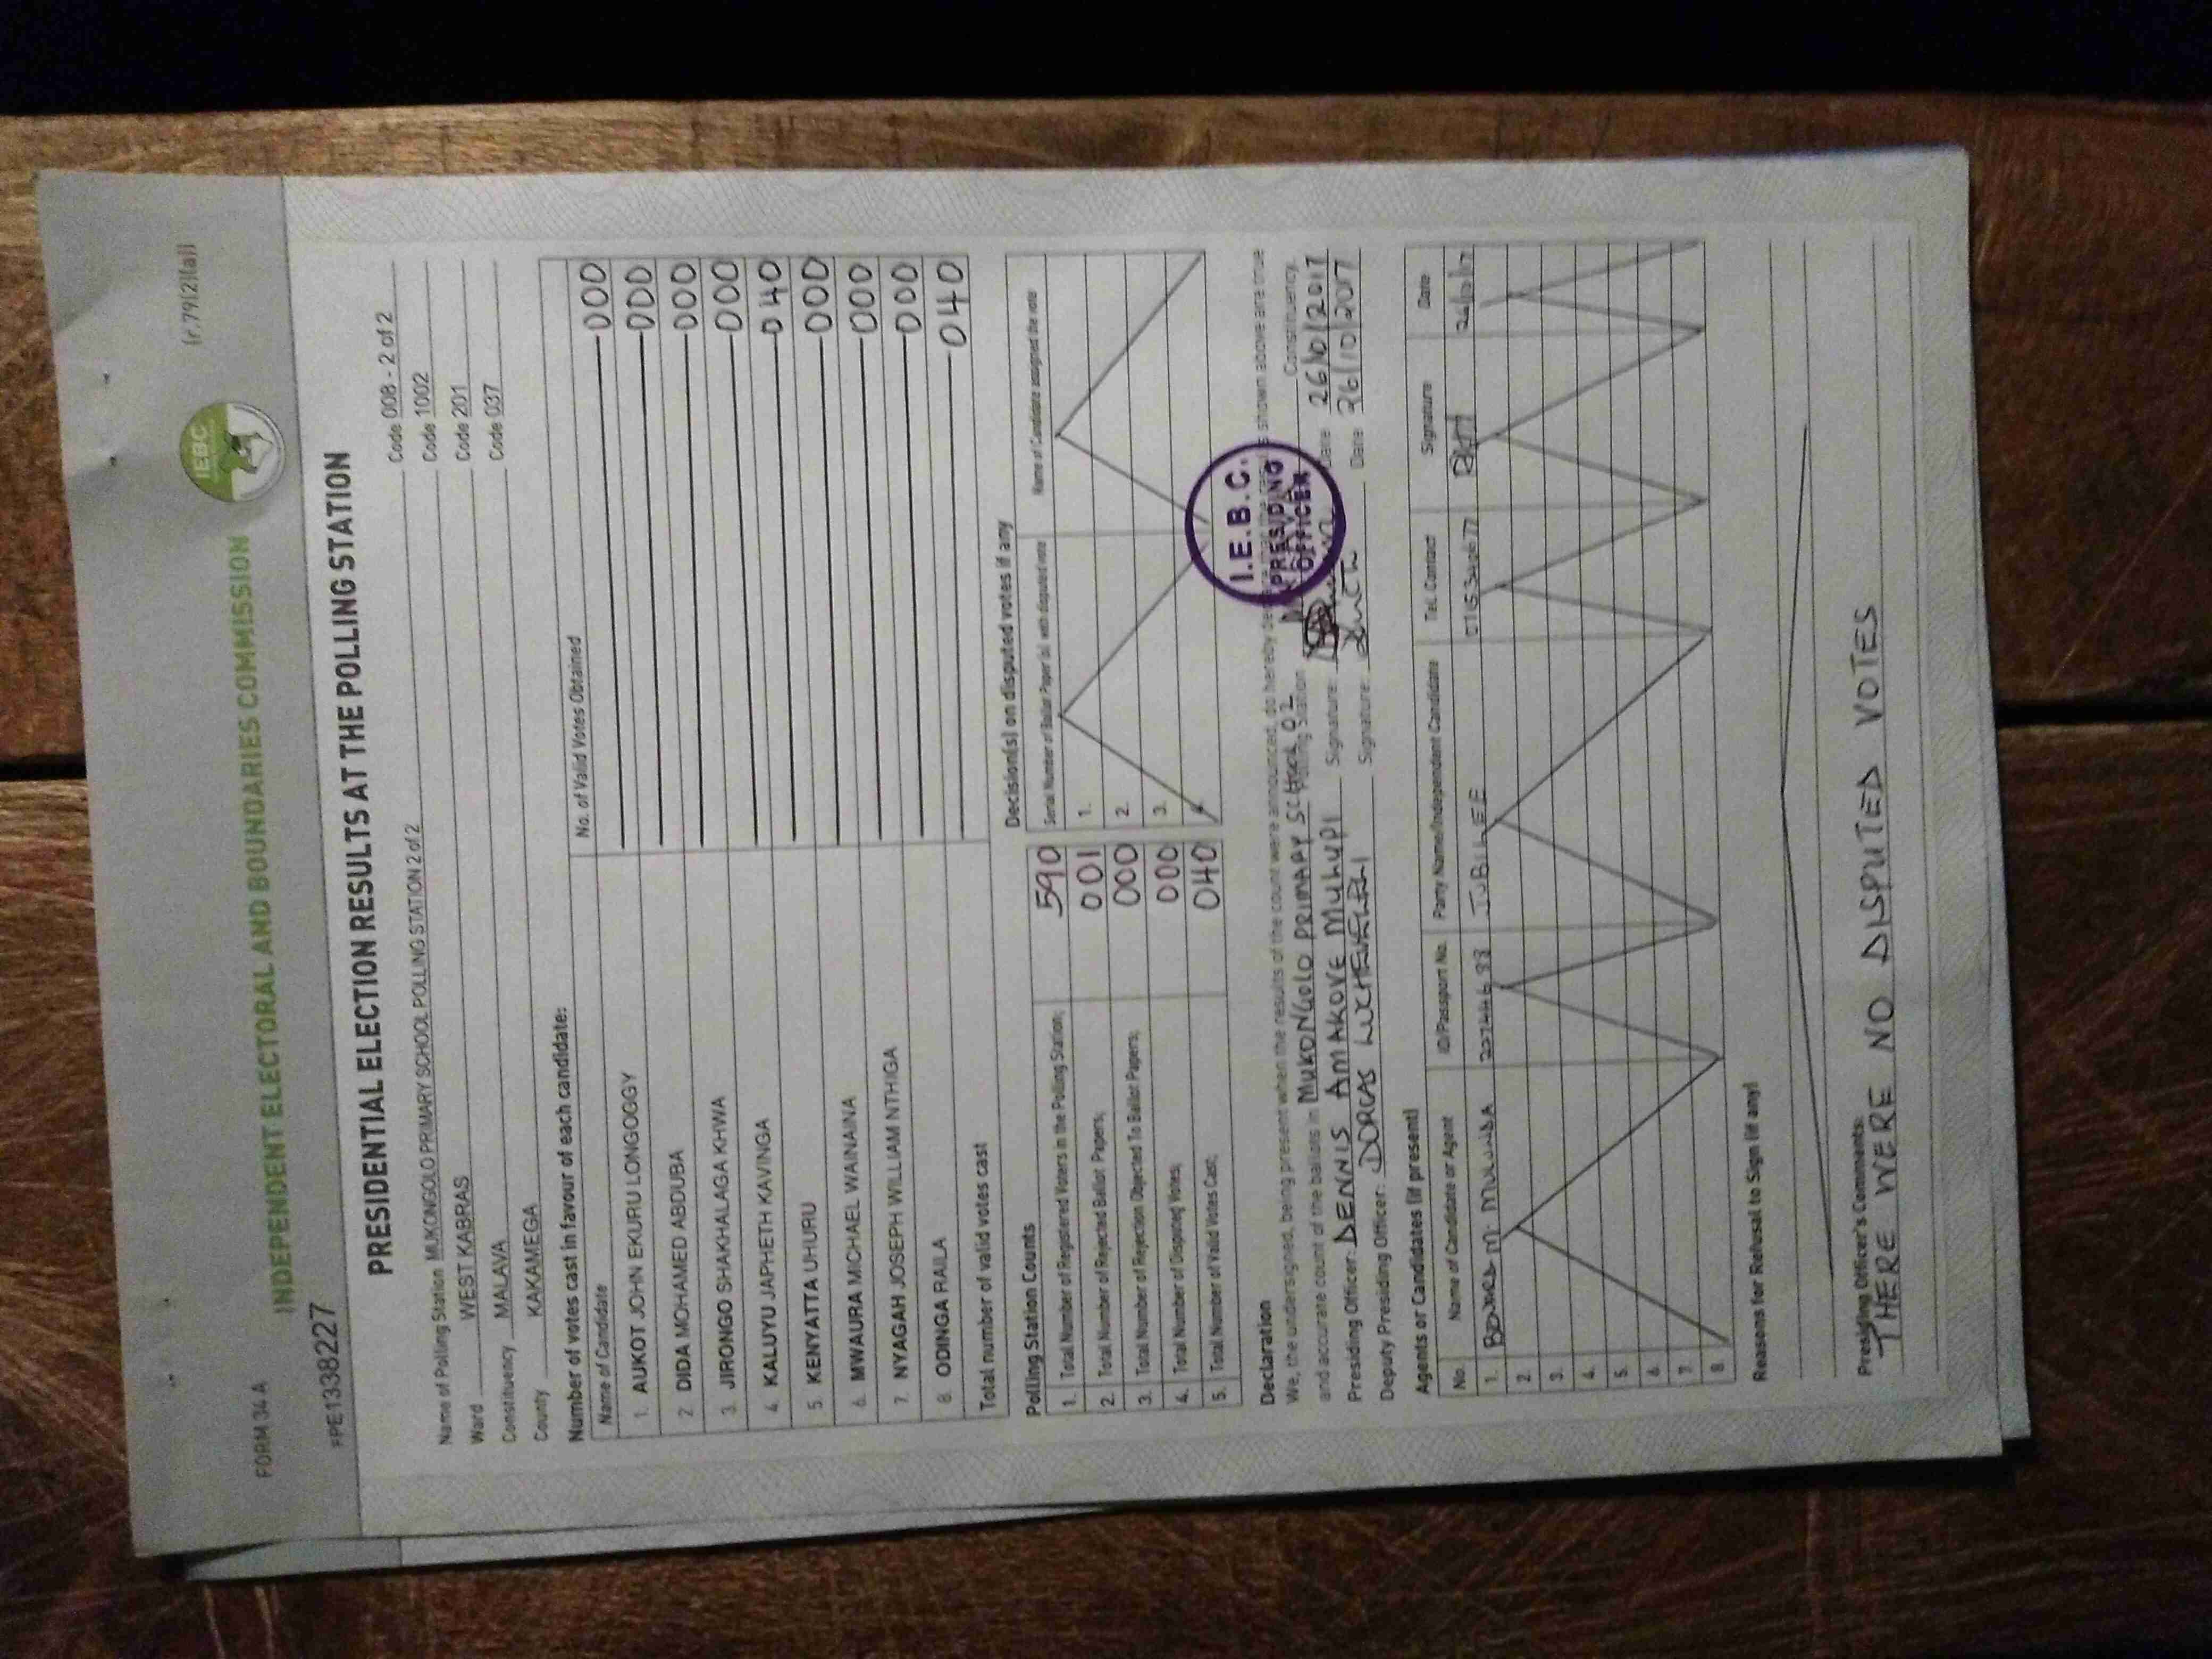 FORM 34 A (r.79(2)(a))
IEBC
INDEPENDENT ELECTORAL AND BOUNDARIES COMMISSION
FPE1338227
PRESIDENTIAL ELECTION RESULTS AT THE POLLING STATION
Name of Polling Station MUKONGOLO PRIMARY SCHOOL POLLING STATION 2 of 2 Code 008 - 2 of 2
Ward WEST KABRAS Code 1002
Constituency MALAVA Code 201
County KAKAMEGA Code 037
Number of votes cast in favour of each candidate:
Name of Candidate No. of Valid Votes Obtained
1. AUKOT JOHN EKURU LONGOGGY 000
2 DIDA MOHAMED ABDUBA 000
3. JIRONGO SHAKHALAGA KHWA 000
4. KALUYU JAPHETH KAVINGA 000
5. KENYATTA UHURU 040
6. MWAURA MICHAEL WAINAINA 000
7. NYAGAH JOSEPH WILLIAM NTHIGA 000
8. ODINGA RAILA 000
Total number of valid votes cast 040
Polling Station Counts
1. Total Number of Registered Voters in the Polling Station; 590
2. Total Number of Rejected Ballot Papers; 001
3. Total Number of Rejection Objected To Ballot Papers; 000
4. Total Number of Disputed Votes; 000
5. Total Number of Valid Votes Cast; 040
Decision(s) on disputed votes if any
Serial Number of Ballot Paper (s) with disputed vote Name of Candidate assigned the vote
1.
2.
3.
Declaration
We, the undersigned, being present when the results of the count were announced, do hereby shown above are true
and accurate count of the ballots in MUKONGOLO PRIMARY SCHOOL 02 Polling Station Constituency.
Presiding Officer: DENNIS AMAKOVE MUHUPI Signature: Date 26/10/2017
Deputy Presiding Officer: DORCAS Signature: Date 26/10/2017
I.E.B.C.
PRESIDING
OFFICER
Agents or Candidates (if present)
No. Name of Candidate or Agent ID/Passport No. Party Name/Independent Candidate Tel. Contact Signature Date
1. JUBILEE
2.
3.
4.
5.
6.
7
8
Reasons for Refusal to Sign (if any)
Presiding Officer's Comments:
THERE WERE NO DISPUTED VOTES